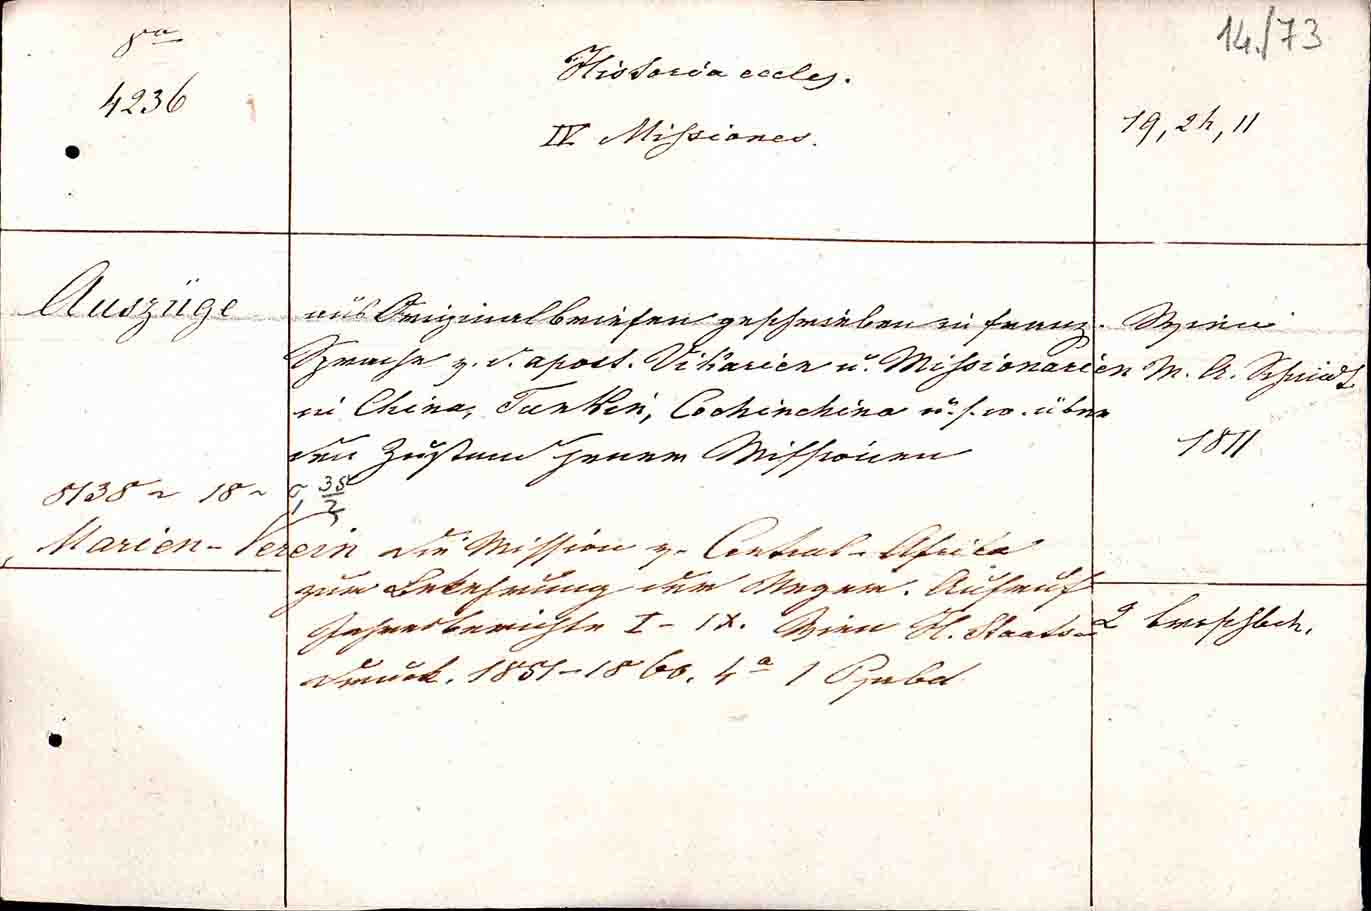 8va
4236
Historia eccles.
IV Missiones.
14./73
19, 2h, 11
Auszüge aus Originalbriefen geschrieben in franz.
Sprache v. d. apost. Vikarien u. Missionarien
in China, Tunkin, Cochinchina u. s. w. über
den Zustand jener Missionen
Wien
M. A. Schmidt
1811
8138 ~ 18 ~
Marien-Verein die Mission v. Central-Afrika
zur Bekehrung der Neger. Aufruf
Jahresberichte I - IX. Wien H. Staats-
druck. 1851-1860. 4a 1 Ppbd
2 broschbde.